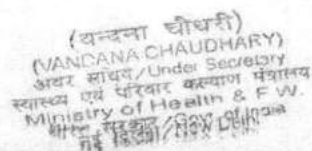 (वन्दना चौधरी)
(VANDANA CHAUDHARY)
अवर सचिव/Under Secretary
स्वास्थ्य एवं परिवार कल्याण मंत्रालय
Ministry of Health & F.W.
भारत सरकार/Gov. of India
नई दिल्ली/New Delhi